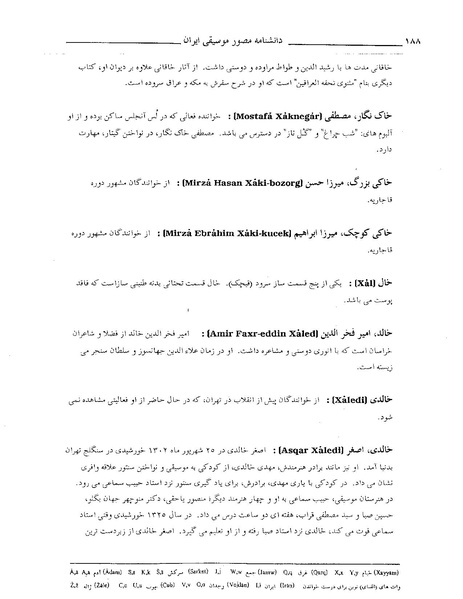 ۱۸۸ دانشنامه مصور موسیقی ایران
خاقانی مدت ها با رشید الدین و طواط مراوده و دوستی داشت. از آثار خاقانی علاوه بر دیوان او، کتاب
دیگری بنام "مثنوی تحفه العراقین" است که او در شرح سفرش به مکه و عراق سروده است.
خاک نگار، مصطفی [Mostafá Xáknegár] : خواننده فعالی که در لُس آنجلس ساکن بوده و از او
آلبوم های: "شب چراغ" و "گُل ناز" در دسترس می باشد. مصطفی خاک نگار، در نواختن گیتار، مهارت
دارد.
خاکی بزرگ، میرزا حسن [Mirzá Hasan Xáki-bozorg] : از خوانندگان مشهور دوره
قاجاریه.
خاکی کوچک، میرزا ابراهیم [Mirzá Ebráhim Xáki-kucek] : از خوانندگان مشهور دوره
قاجاریه.
خال [Xál] : یکی از پنج قسمت ساز سرود (قیچک). خال قسمت تحتانی بدنه طنینی سازاست که فاقد
پوست می باشد.
خالد، امیر فخر الدین [Amir Faxr-eddin Xáled] : امیر فخر الدین خالد از فضلا و شاعران
خراسان است که با انوری دوستی و مشاعره داشت. او در زمان علاء الدین جهانسوز و سلطان سنجر می
زیسته است.
خالدی [Xáledi] : از خوانندگان پیش از انقلاب در تهران، که در حال حاضر از او فعالیتی مشاهده نمی
شود.
خالدی، اصغر [Asqar Xáledi] : اصغر خالدی در ۲۵ شهریور ماه ۱۳۰۲ خورشیدی در سنگلج تهران
بدنیا آمد. او نیز مانند برادر هنرمندش، مهدی خالدی، از کودکی به موسیقی و نواختن سنتور علاقه وافری
نشان می داد. در کودکی با یاری مهدی، برادرش، برای یاد گیری سنتور نزد استاد حبیب سماعی می رود.
در هنرستان موسیقی، حبیب سماعی به او و چهار هنرمند دیگر؛ منصور یاحقی، دکتر منوچهر جهان بگلو،
حسین صبا و سید مصطفی قراب، هفته ای دو ساعت درس می داد. در سال ۱۳۲۵ خورشیدی وقتی استاد
سماعی فوت می کند، خالدی نزد استاد صبا رفته و از او تعلیم می گیرد. اصغر خالدی از زبردست ترین